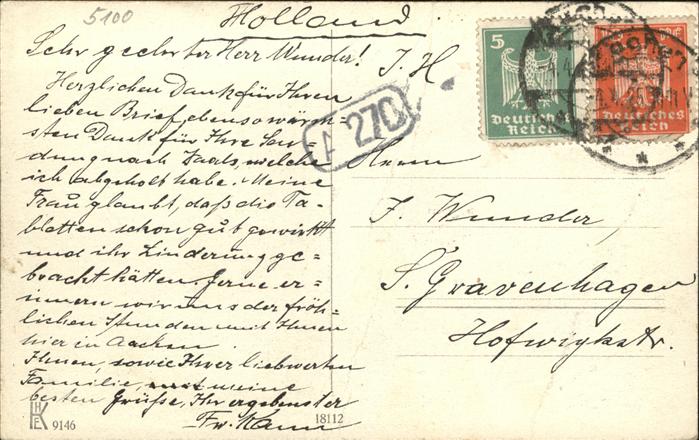 5100
Holland
Sehr geehrter Herr Wunder! J. H
Herzlichen Dank für Ihren
lieben Brief, ebenso wärm=
sten Dank für Ihre Sen=
dung nach Vaals, welche
ich abgeholt habe. Meine
Frau glaubt, daß die Ta=
bletten schon gut gewirkt
und ihr Linderung ge=
bracht hätten. Gerne er=
innern wir uns der fröh=
lichen Stunden mit Ihnen
hier in Aachen.
Ihnen, sowie Ihrer liebwerten
Familie, meine
besten Grüße, Ihr ergebenster
Fr. Kann
Herrn
F. Wunder,
S'Gravenhagen
Hofwijkstr.
A 270
5
Deutsches
Reich
Deutsches
Reich
Aachen
HKE 9146
18112